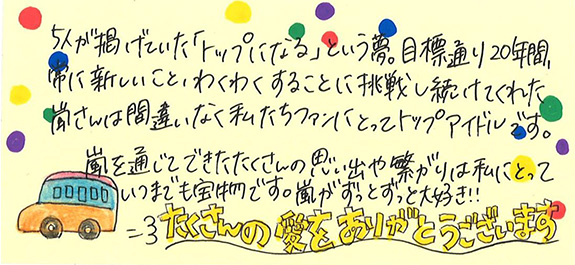 5人が掲げていた「トップになる」という夢。目標通り20年間、
常に新しいこと、わくわくすることに挑戦し続けてくれた
嵐さんは間違いなく私たちファンにとってトップアイドルです。
嵐を通じてできたたくさんの思い出や繋がりは私にとって
いつまでも宝物です。嵐がずっとずっと大好き!!
=3 たくさんの愛をありがとうございます